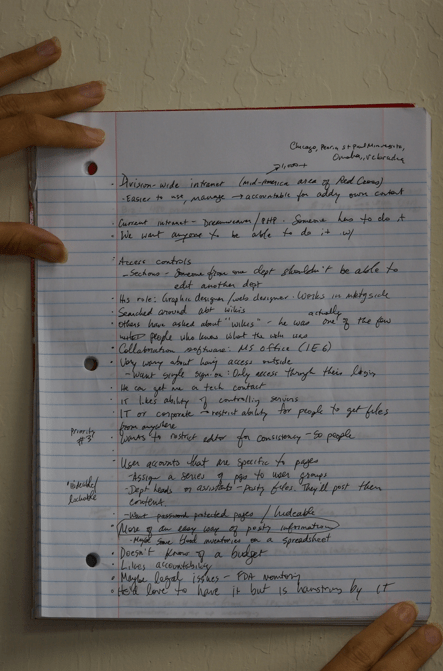 Chicago, Peoria, St Paul Minnesota,
Omaha,
· Division-wide intranet (mid-America area of Red Cross)
- Easier to use, manage → accountable for adding own content
· Current intranet - Dreamweaver/PHP. Someone has to do it
· We want anyone to be able to do it w/
· Access controls
- Sections - Someone from one dept shouldn't be able to
edit another dept
· His role: Graphic designer/web designer. Works in mktg side
· Searched around abt wikis
actually
· Others have asked about "wikis" - he was one of the few
people who knows what the wiki was
· Collaboration software: MS Office (IE6)
· Very worry about having access outside
- Want single sign on: Only access through their login
· He can get me a tech contact
· IT likes ability of controlling servers
· IT or corporate → restrict ability for people to get files
from anywhere
Priority
#3
· Wants to restrict editor for consistency - so people
· User accounts that are specific to pages
- Assign a series of pgs to user groups
- Dept heads or assistants - posting files. They'll post their
content.
*hideable/
lockable
- Want password protected pages / hideable
· More of an easy way of posting information
- Maybe save their inventories on a spreadsheet
· Doesn't know of a budget
· Likes accountability
· Maybe legal issues - FDA monitoring
· He'd love to have it but is hamstrung by IT